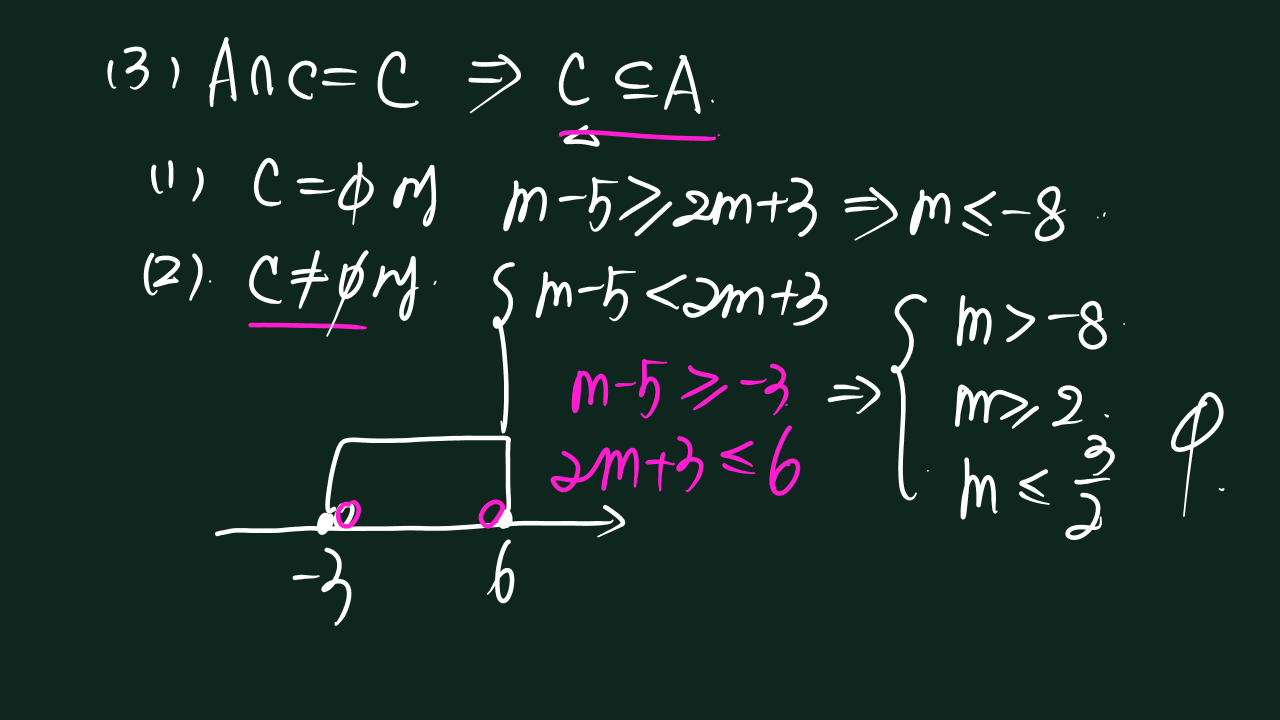 (3) A∩C=C ⇒ C⊆A.
(1) C=∅时 m-5≥2m+3 ⇒ m≤-8
(2). C≠∅时. { m-5<2m+3
m-5≥-3
2m+3≤6
⇒ { m>-8
m≥2
m≤3/2
∅
-3 6